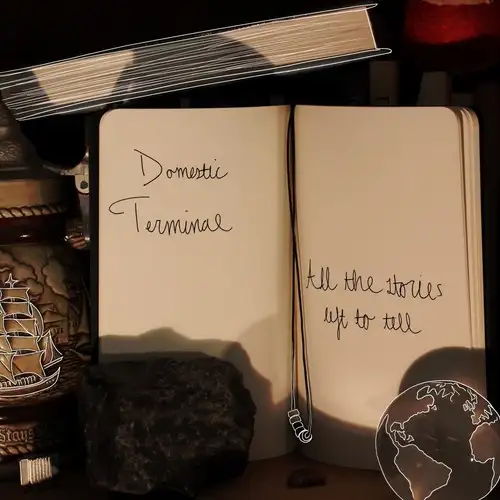 Domestic
Terminal
All the stories
left to tell